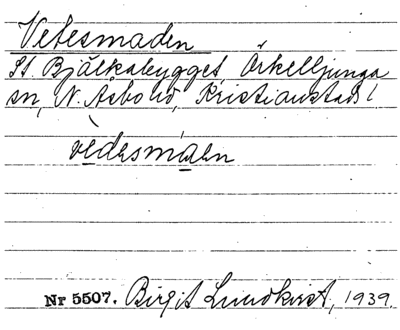 Vetesmaden
St. Bjälkabygget, Örkelljunga
sn, N. Åsbo hd, Kristianstads l
vedesmaen
Nr 5507. Birgit Lundkvist, 1939.